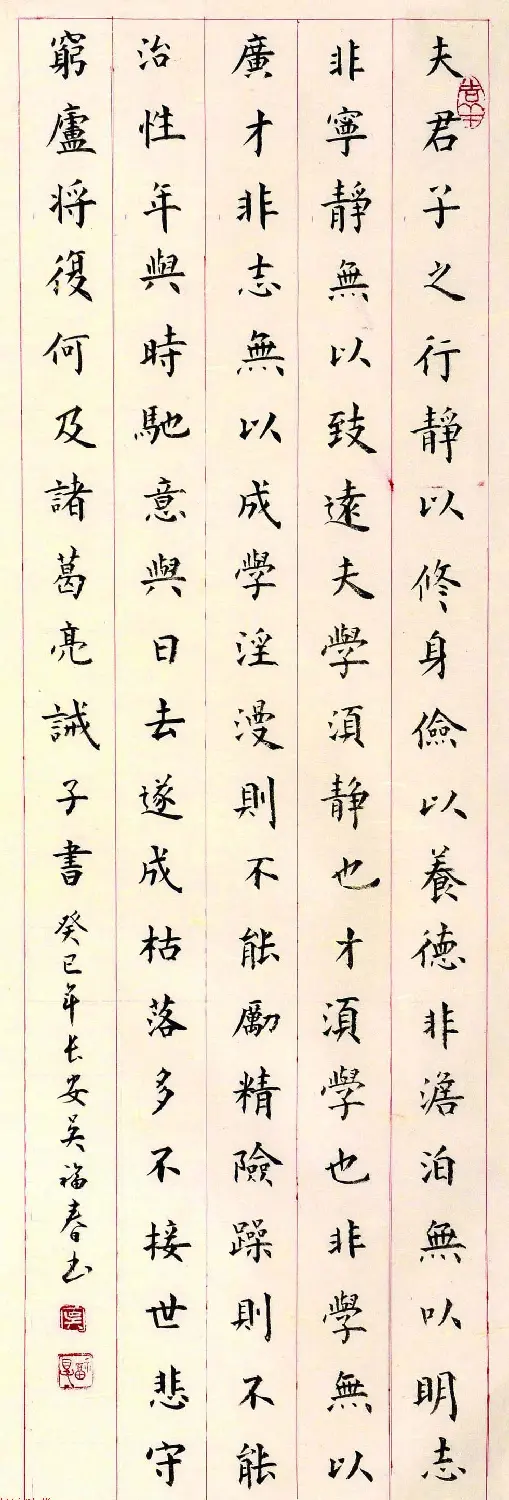 夫君子之行靜以修身儉以養德非澹泊無以明志
非寧靜無以致遠夫學須靜也才須學也非學無以
廣才非志無以成學淫漫則不能勵精險躁則不能
治性年與時馳意與日去遂成枯落多不接世悲守
窮廬将復何及諸葛亮誡子書癸巳年长安吴福春书